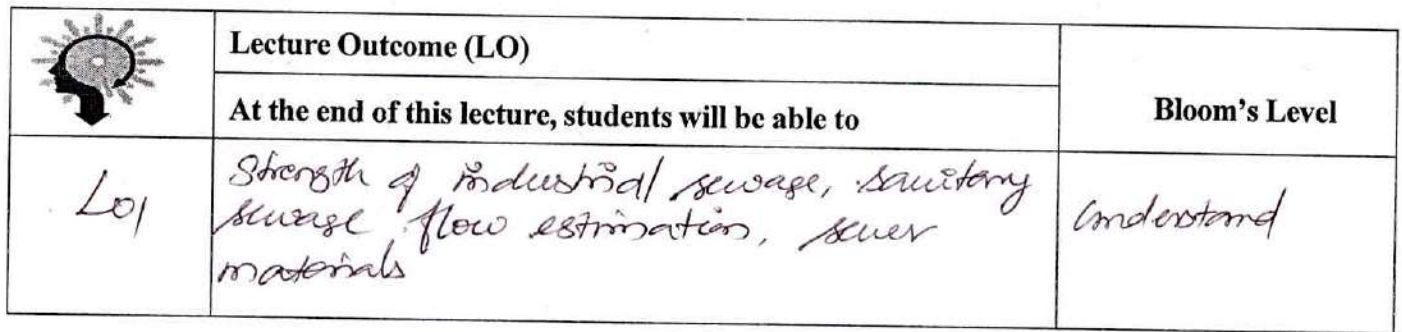 Lecture Outcome (LO)
At the end of this lecture, students will be able to
Bloom's Level
LO1
Strength of industrial sewage, sanitary
sewage flow estimation, sewer
materials
Understand